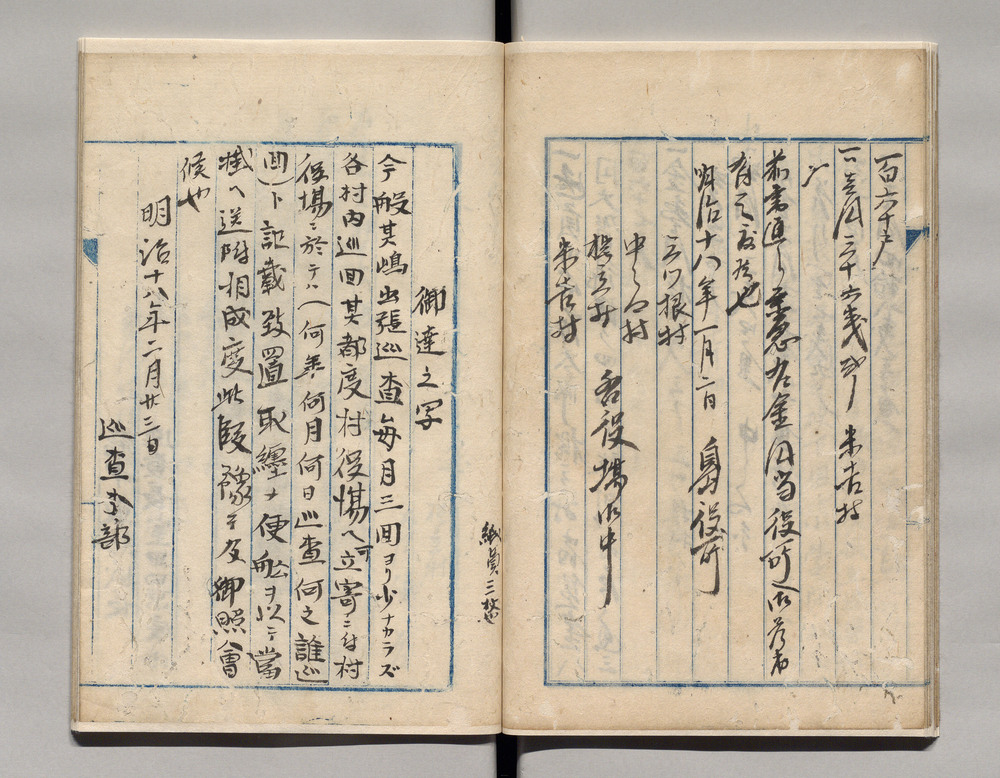 百六十戸
一 金円三十六銭 末吉村
〆
前書通り至急右金円当役所迄御差出
有之度候也
明治十八年一月二日 島役所
三ツ根村
中之郷村
樫立村
末吉村
各役場御中
紙員三枚
御達之写
今般其嶋出張巡査毎月三回ヨリ少ナカラズ
各村内巡回其都度村役場ヘ可立寄ニ付村
役場ニ於テハ(何年何月何日巡査何之誰巡
回)ト記載致置取纏メ便船ヲ以テ當
掛ヘ送附相成度此段豫テ及御照會
候也
明治十八年二月廿三日
巡査本部